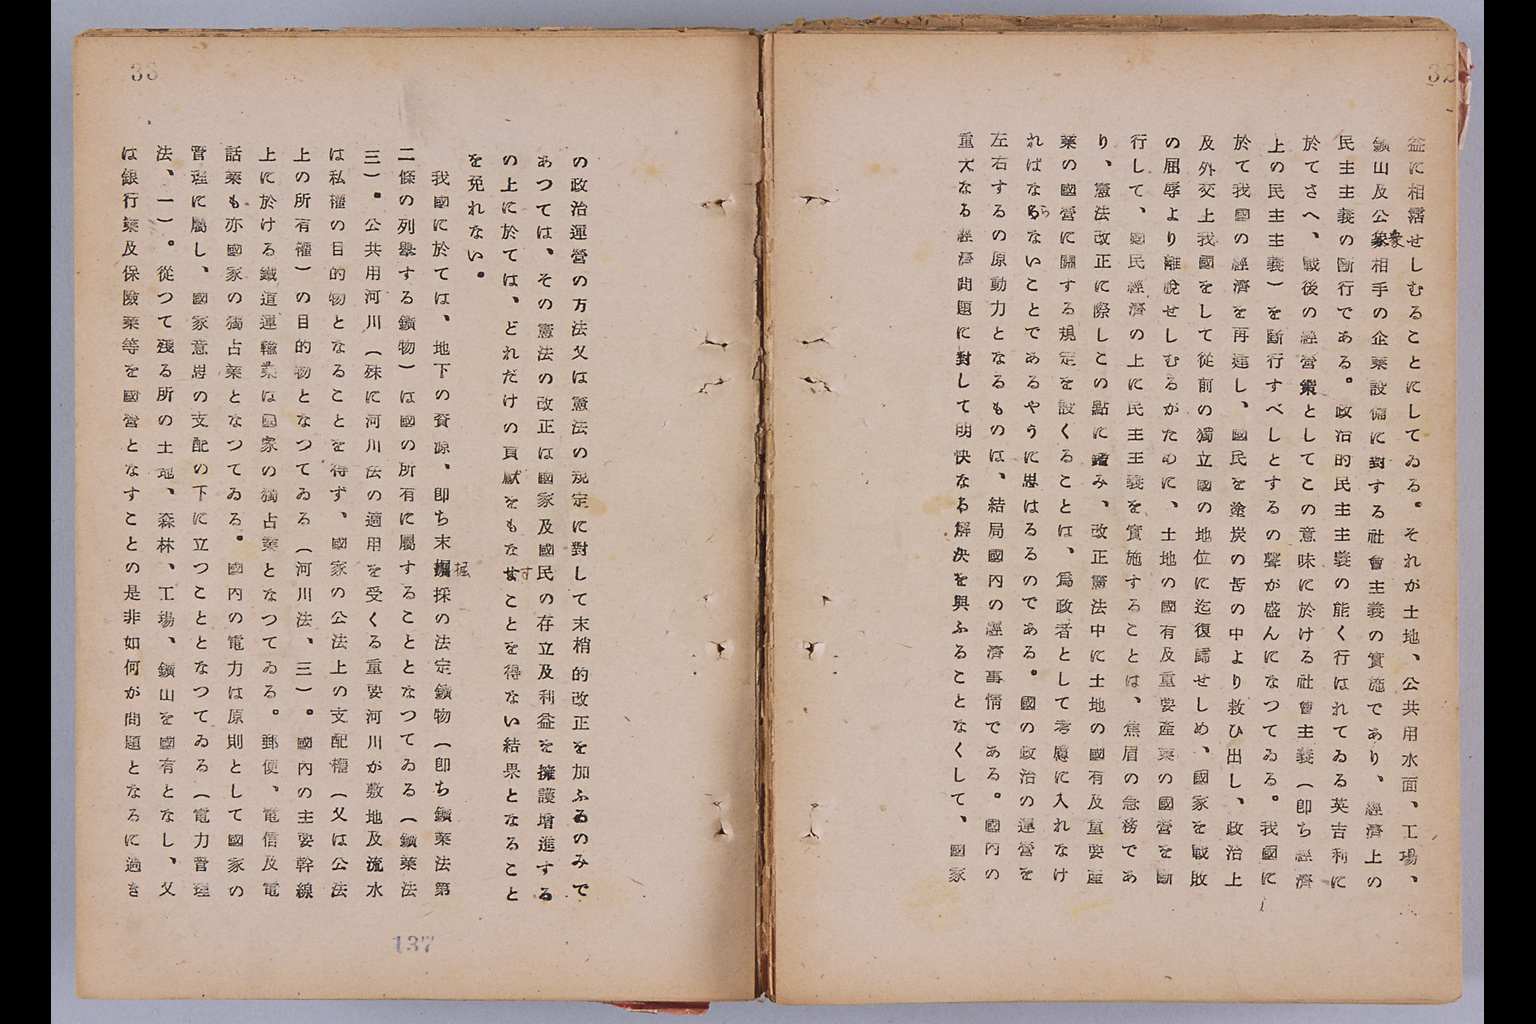 32
益に相活せしむることにしてゐる。それが土地、公共用水面、工場、
鑛山及公衆相手の企業設備に對する社會主義の實施であり、經濟上の
民主主義の斷行である。政治的民主主義の能く行はれてゐる英吉利に
於てさへ、戰後の經營策としてこの意味に於ける社會主義(卽ち經濟
上の民主主義)を斷行すべしとするの聲が盛んになつてゐる。我國に
於て我國の經濟を再建し、國民を塗炭の苦の中より救ひ出し、政治上
及外交上我國をして從前の獨立國の地位に迄復歸せしめ、國家を戰敗
の屈辱より離脫せしむるがために、土地の國有及重要產業の國營を斷
行して、國民經濟の上に民主主義を實施することは、焦眉の急務であ
り、憲法改正に際しこの點に鑑み、改正憲法中に土地の國有及重要產
業の國營に關する規定を設くることは、爲政者として考慮に入れなけ
ればならないことであるやうに思はるるのである。國の政治の運營を
左右するの原動力となるものは、結局國內の經濟事情である。國內の
重大なる經濟問題に對して明快なる解決を與ふることなくして、國家
33
の政治運營の方法又は憲法の規定に對して末梢的改正を加ふるのみで
あつては、その憲法の改正は國家及國民の存立及利益を擁護增進する
の上に於ては、どれだけの貢獻をもなすことを得ない結果となること
を免れない。
我國に於ては、地下の資源、卽ち未掘採の法定鑛物(卽ち鑛業法第
二條の列擧する鑛物)は國の所有に屬することとなつてゐる(鑛業法
三)。公共用河川(殊に河川法の適用を受くる重要河川が敷地及流水
は私權の目的物となることを得ず、國家の公法上の支配權(又は公法
上の所有權)の目的物となつてゐる(河川法、三)。國內の主要幹線
上に於ける鐵道運輸業は國家の獨占業となつてゐる。郵便、電信及電
話業も亦國家の獨占業となつてゐる。國內の電力は原則として國家の
管理に屬し、國家意思の支配の下に立つこととなつてゐる(電力管理
法、一)。從つて殘る所の土地、森林、工場、鑛山を國有となし、又
は銀行業及保險業等を國營となすことの是非如何が問題となるに過き
137